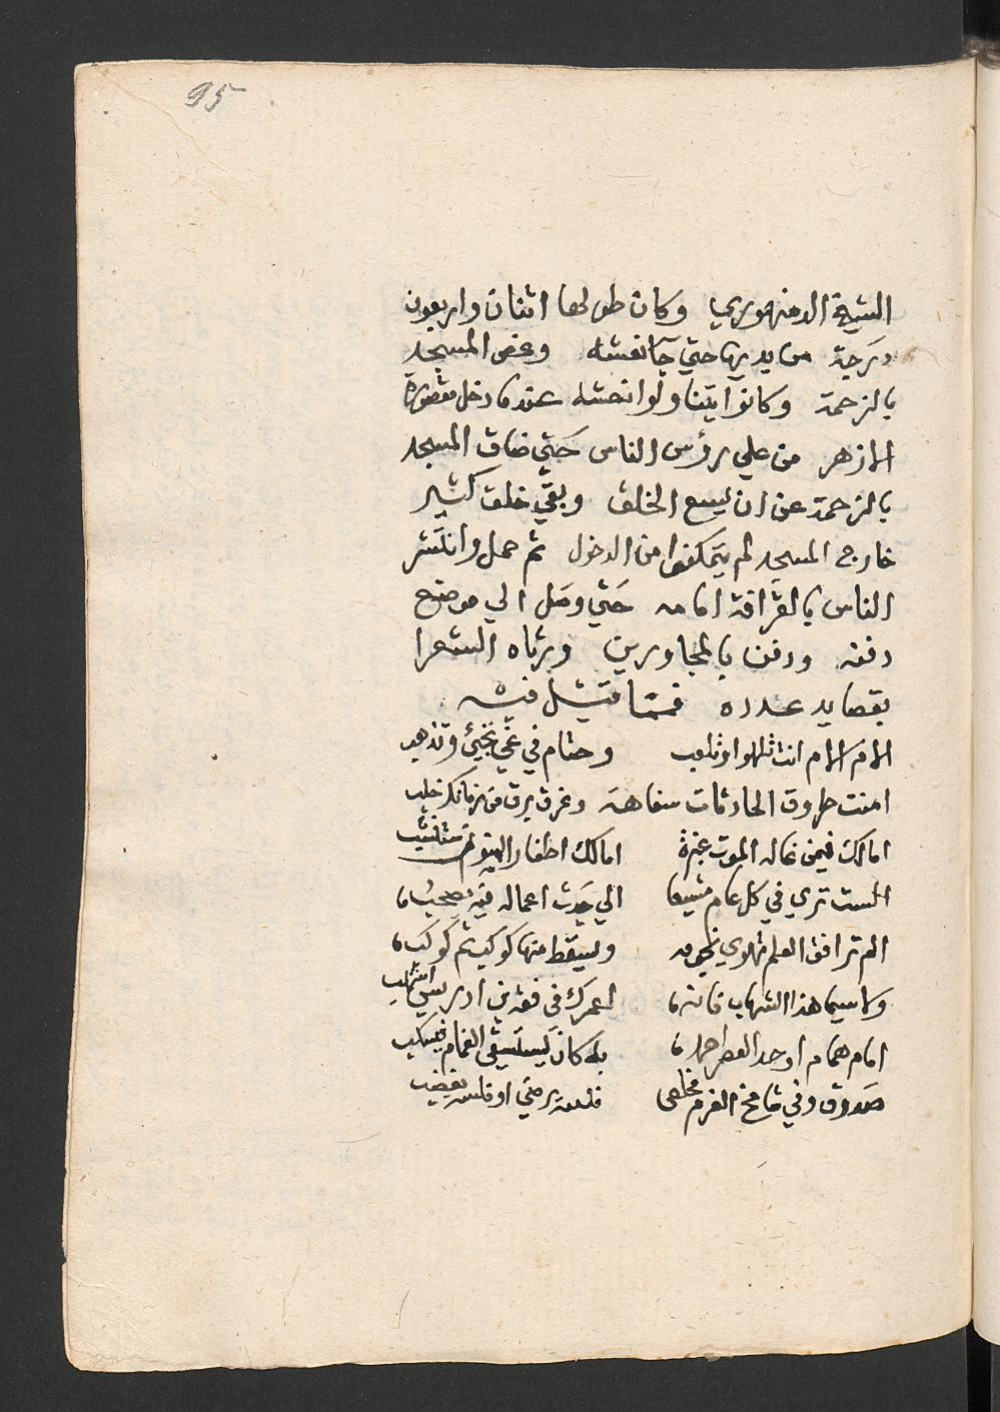 95
الشيخ الدمنهوري وكان طولها اثنان واربعون
درجة من يديها حتي جآ نعشه وغص المسجد
بالزحمة وكانوا يتناولوا نعشه عندما دخل مقصورة
الازهر من علي رؤس الناس حتي ضاق المسجد
بالزحمة عن ان يسع الخلق وبقي خلق كثير
خارج المسجد لم يتمكنوا من الدخول ثم حمل وانتشر
الناس بالقرافة امامه حتي وصل الي موضع
دفنه ودفن بالمجاورين ورثاه الشعرا
بقصايد عدده فمما قيل فيه
الام الام انت تلهوا وتلعب وحتام في غي تجيئ وتذهب
امنت طروق الحادثات سفاهة وغرق برق من زمانك خلب
امالك فيمن غاله الموت عبرة امالك اظفار المنون ستنشب
الست تري في كل عام مشيعا الي جدث اعماله فيه تصحب
الم تر افق العلم تهوي نجومه ويسقط منها كوكب ثم كوكب
ولا سيما هذا الشهاب فانه لعمرك في فقه بن ادريس اشهب
امام همام اوحد العصر احمد به كان يستسقي الغمام فيسكب
صدوق وفي شامخ العزم مخلص فلله يرضي او فلله يغضب